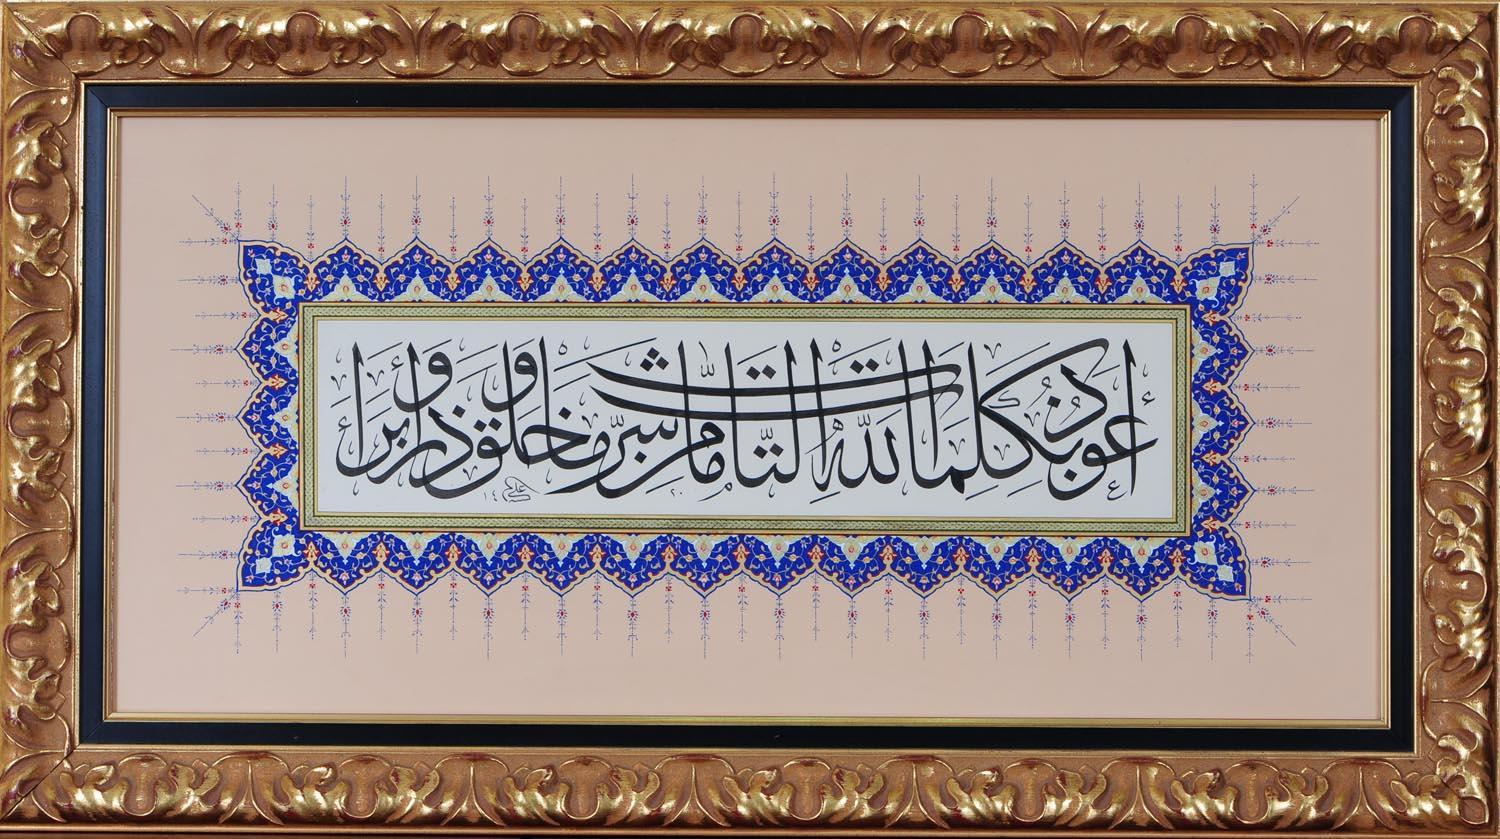 أعوذ بكلمات الله التامات من شر ما خلق وذرأ وبرأ